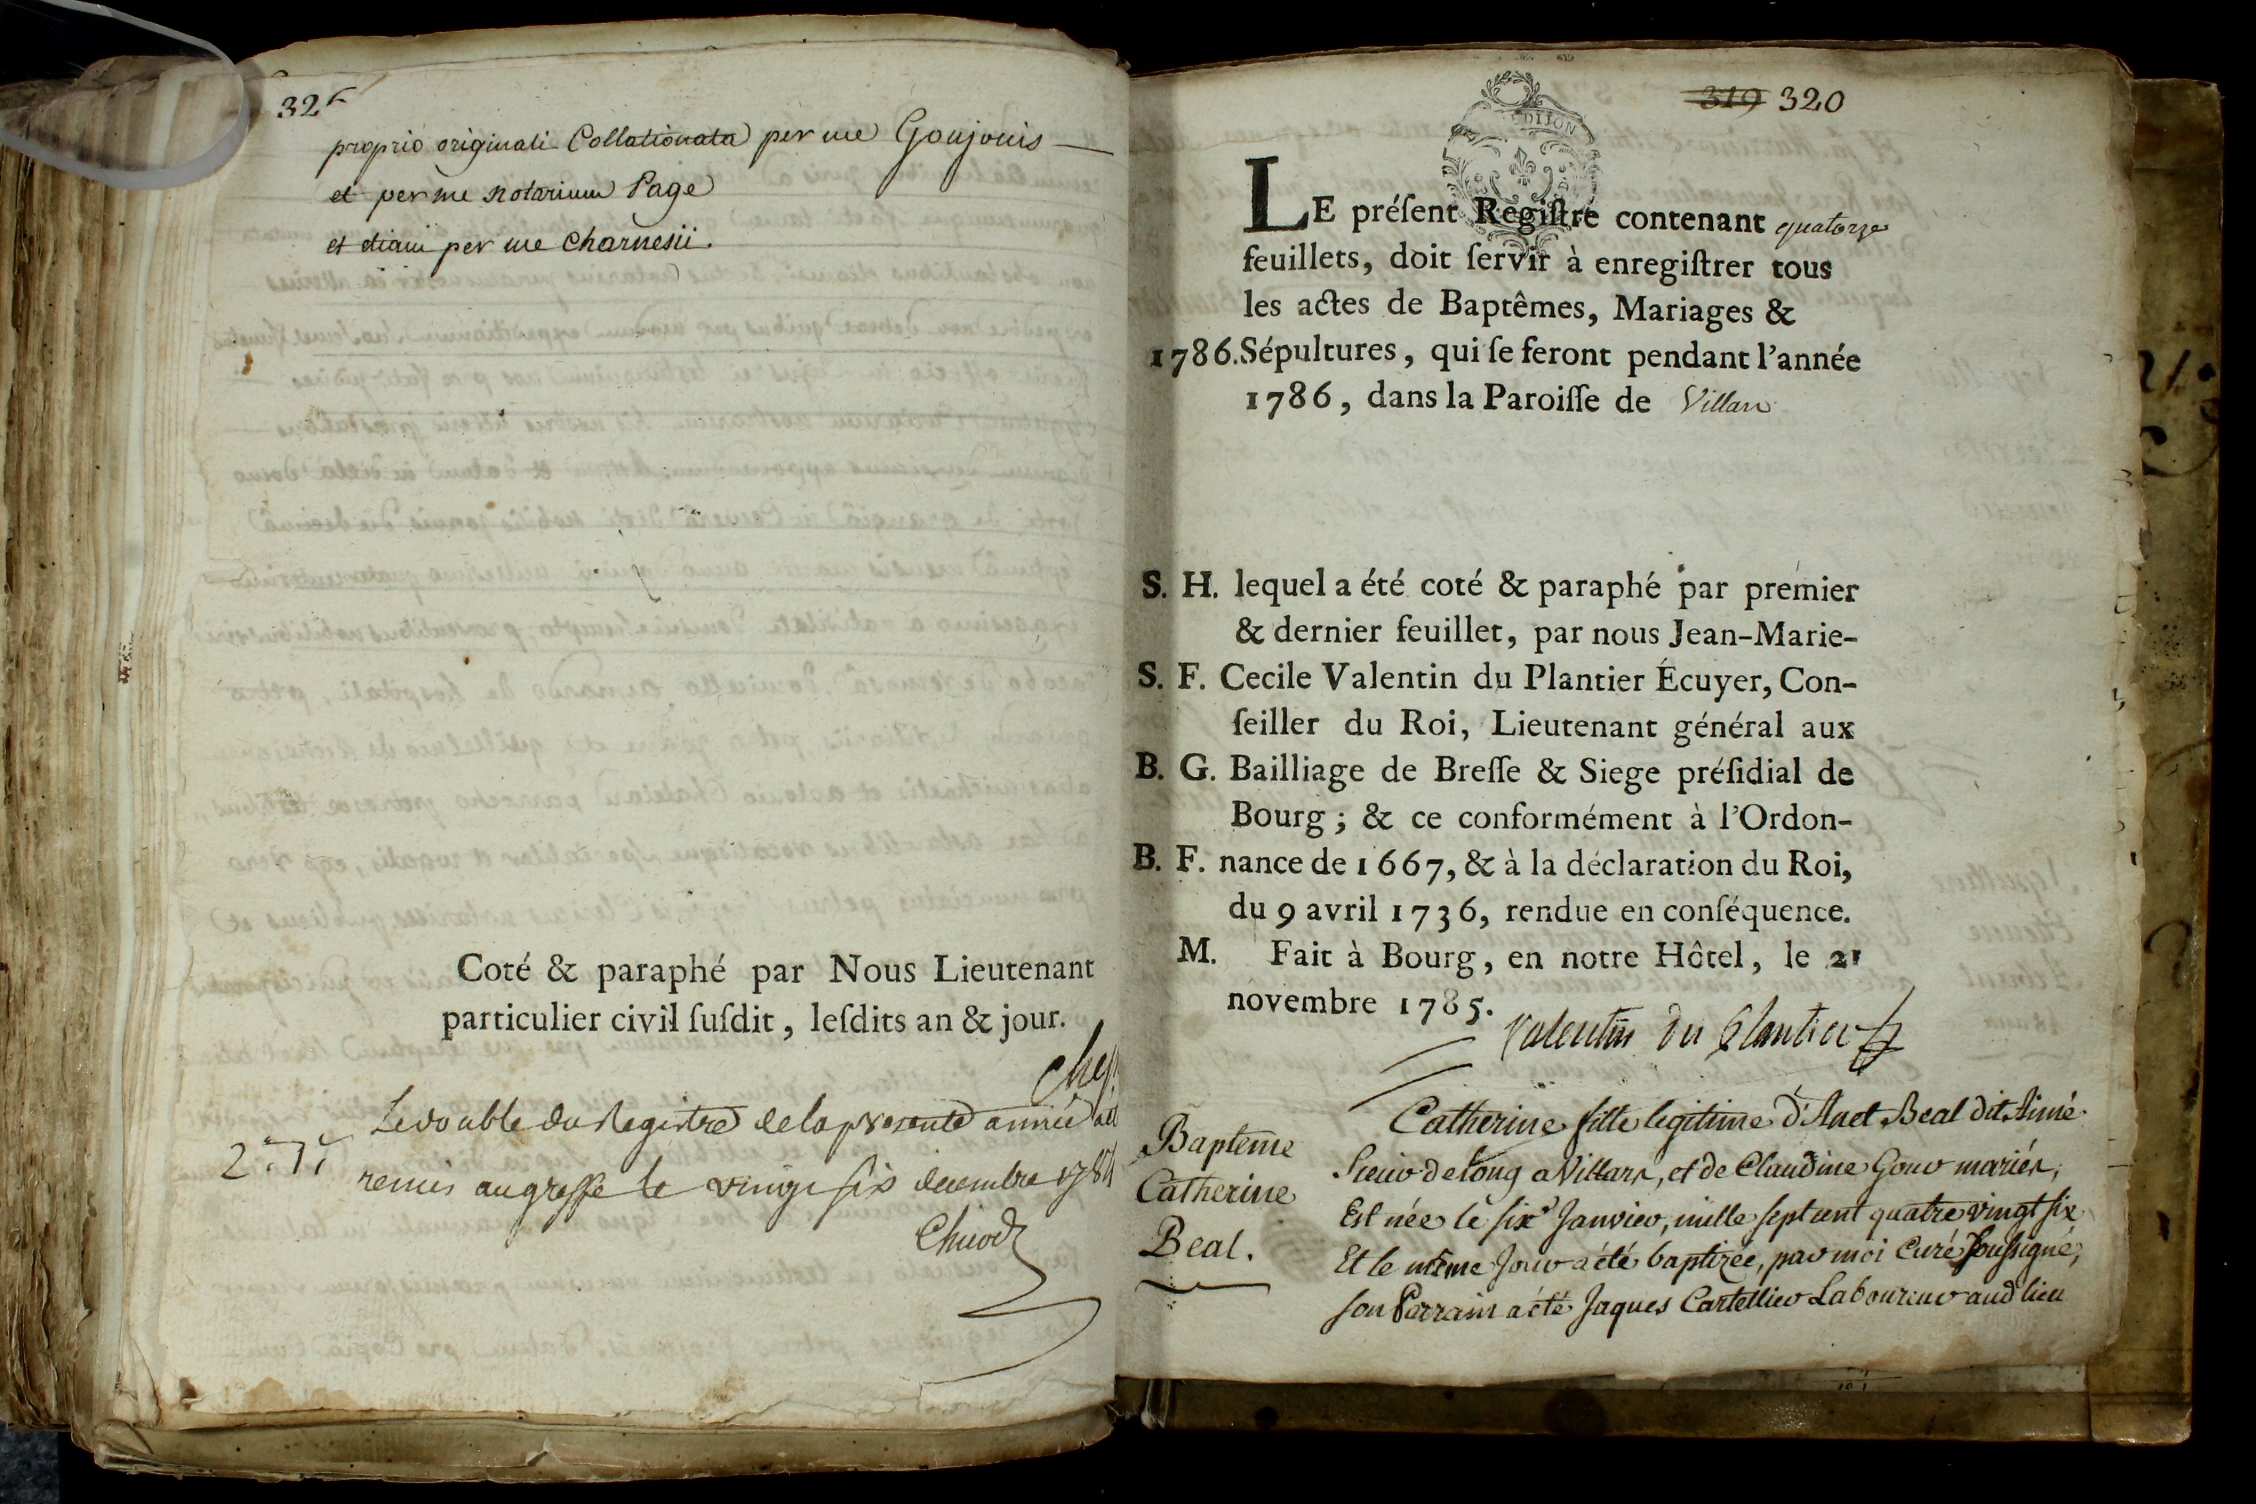 32
proprio originali Collationata per me Goujonis —
et per me notarium Page
et etiam per me Charnesii.
Coté & paraphé par Nous Lieutenant
particulier civil ſuſdit, leſdits an & jour.
Le double du Registre de la presente année
remis au greffe le vingt six decembre
319 320
DIJON
LE préſent Regiſtre contenant quatorze
feuillets, doit ſervir à enregiſtrer tous
les actes de Baptêmes, Mariages &
1786. Sépultures, qui ſe feront pendant l'année
1786, dans la Paroiſſe de Villars
S. H. lequel a été coté & paraphé par premier
& dernier feuillet, par nous Jean-Marie-
S. F. Cecile Valentin du Plantier Écuyer, Con-
ſeiller du Roi, Lieutenant général aux
B. G. Bailliage de Breſſe & Siege préſidial de
Bourg ; & ce conformément à l'Ordon-
B. F. nance de 1667, & à la déclaration du Roi,
du 9 avril 1736, rendue en conſéquence.
M. Fait à Bourg, en notre Hôtel, le 21
novembre 1785.
Valentin du Plantier
Baptême
Catherine
Beal.
Catherine fille legitime d'Anet Beal dit Aimé
de long a Villars, et de Claudine Gouv mariés,
Est née le six Janvier, mille sept cent quatre vingt six
Et le même Jour a été baptizée, par moi Curé Soussigné,
son Parrain a été Jaques Cartellier Laboureur aud lieu